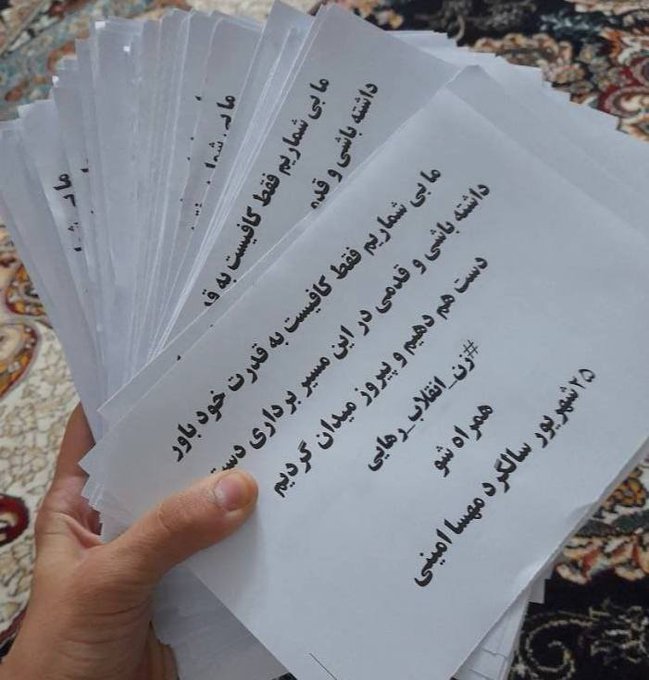 ما بی شماریم فقط کافیست به قدرت خود باور
داشته باشی و قدمی در این مسیر برداری دست
دست هم دهیم و پیروز میدان گردیم
#زن_انقلاب_رهایی
همراه شو
۲۵ شهریور سالگرد مهسا امینی
ما بی شماریم فقط کافیست به قد
داشته باشی و قدم
ما بی شما
ما